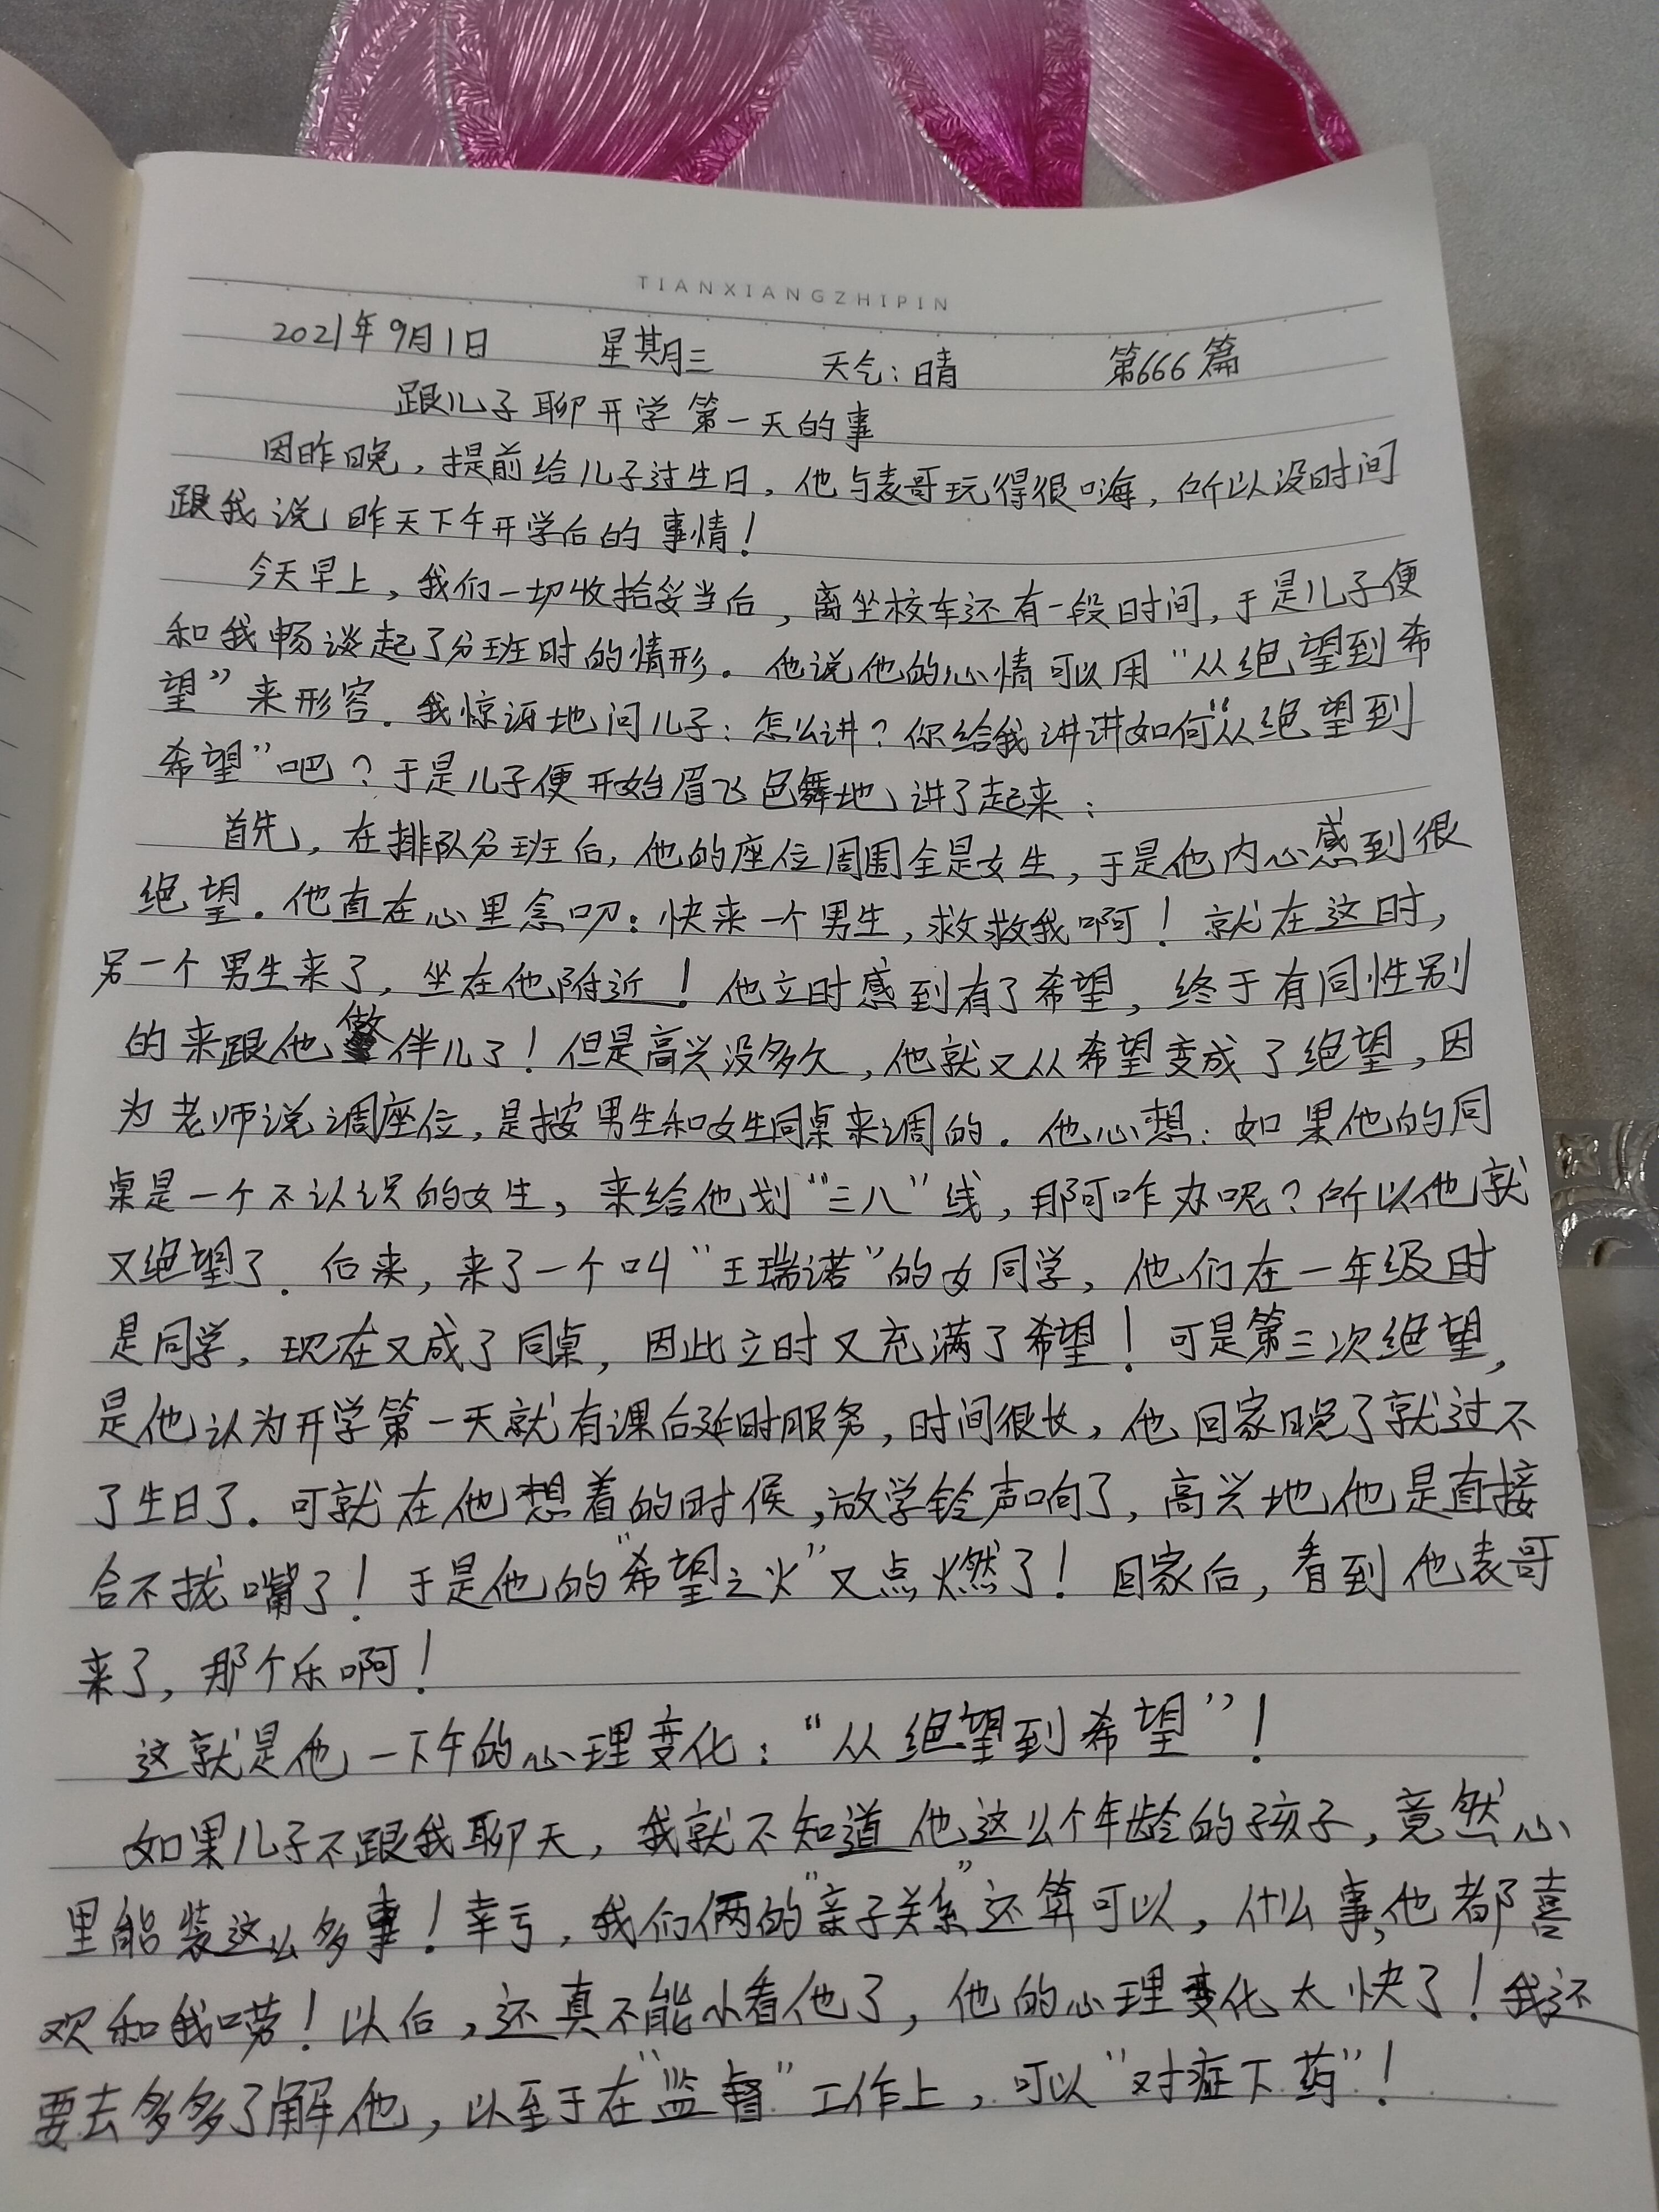 TIANXIANGZHIPIN
2021年9月1日 星期三 天气:晴 第666篇
跟儿子聊开学第一天的事
因昨晚,提前给儿子过生日,他与表哥玩得很嗨,所以没时间
跟我说昨天下午开学后的事情!
今天早上,我们一切收拾妥当后,离坐校车还有一段时间,于是儿子便
和我畅谈起了分班时的情形。他说他的心情可以用“从绝望到希
望”来形容。我惊讶地问儿子:怎么讲?你给我讲讲如何“从绝望到
希望”吧?于是儿子便开始眉飞色舞地讲了起来:
首先,在排队分班后,他的座位周围全是女生,于是他内心感到很
绝望。他直在心里念叨:快来一个男生,救救我啊!就在这时,
另一个男生来了,坐在他附近!他立时感到有了希望,终于有同性别
的来跟他做伴儿了!但是高兴没多久,他就又从希望变成了绝望,因
为老师说调座位,是按男生和女生同桌来调的。他心想:如果他的同
桌是一个不认识的女生,来给他划“三八”线,那可咋办呢?所以他就
又绝望了。后来,来了一个叫“王瑞诺”的女同学,他们在一年级时
是同学,现在又成了同桌,因此立时又充满了希望!可是第三次绝望,
是他认为开学第一天就有课后延时服务,时间很长,他回家晚了就过不
了生日了。可就在他想着的时候,放学铃声响了,高兴地他是直接
合不拢嘴了!于是他的“希望之火”又点燃了!回家后,看到他表哥
来了,那个乐啊!
这就是他一下午的心理变化:“从绝望到希望”!
如果儿子不跟我聊天,我就不知道他这么个年龄的孩子,竟然心
里能装这么多事!幸亏,我们俩的“亲子关系”还算可以,什么事,他都喜
欢和我唠!以后,还真不能小看他了,他的心理变化太快了!我还
要去多多了解他,以至于在“监督”工作上,可以“对症下药”!